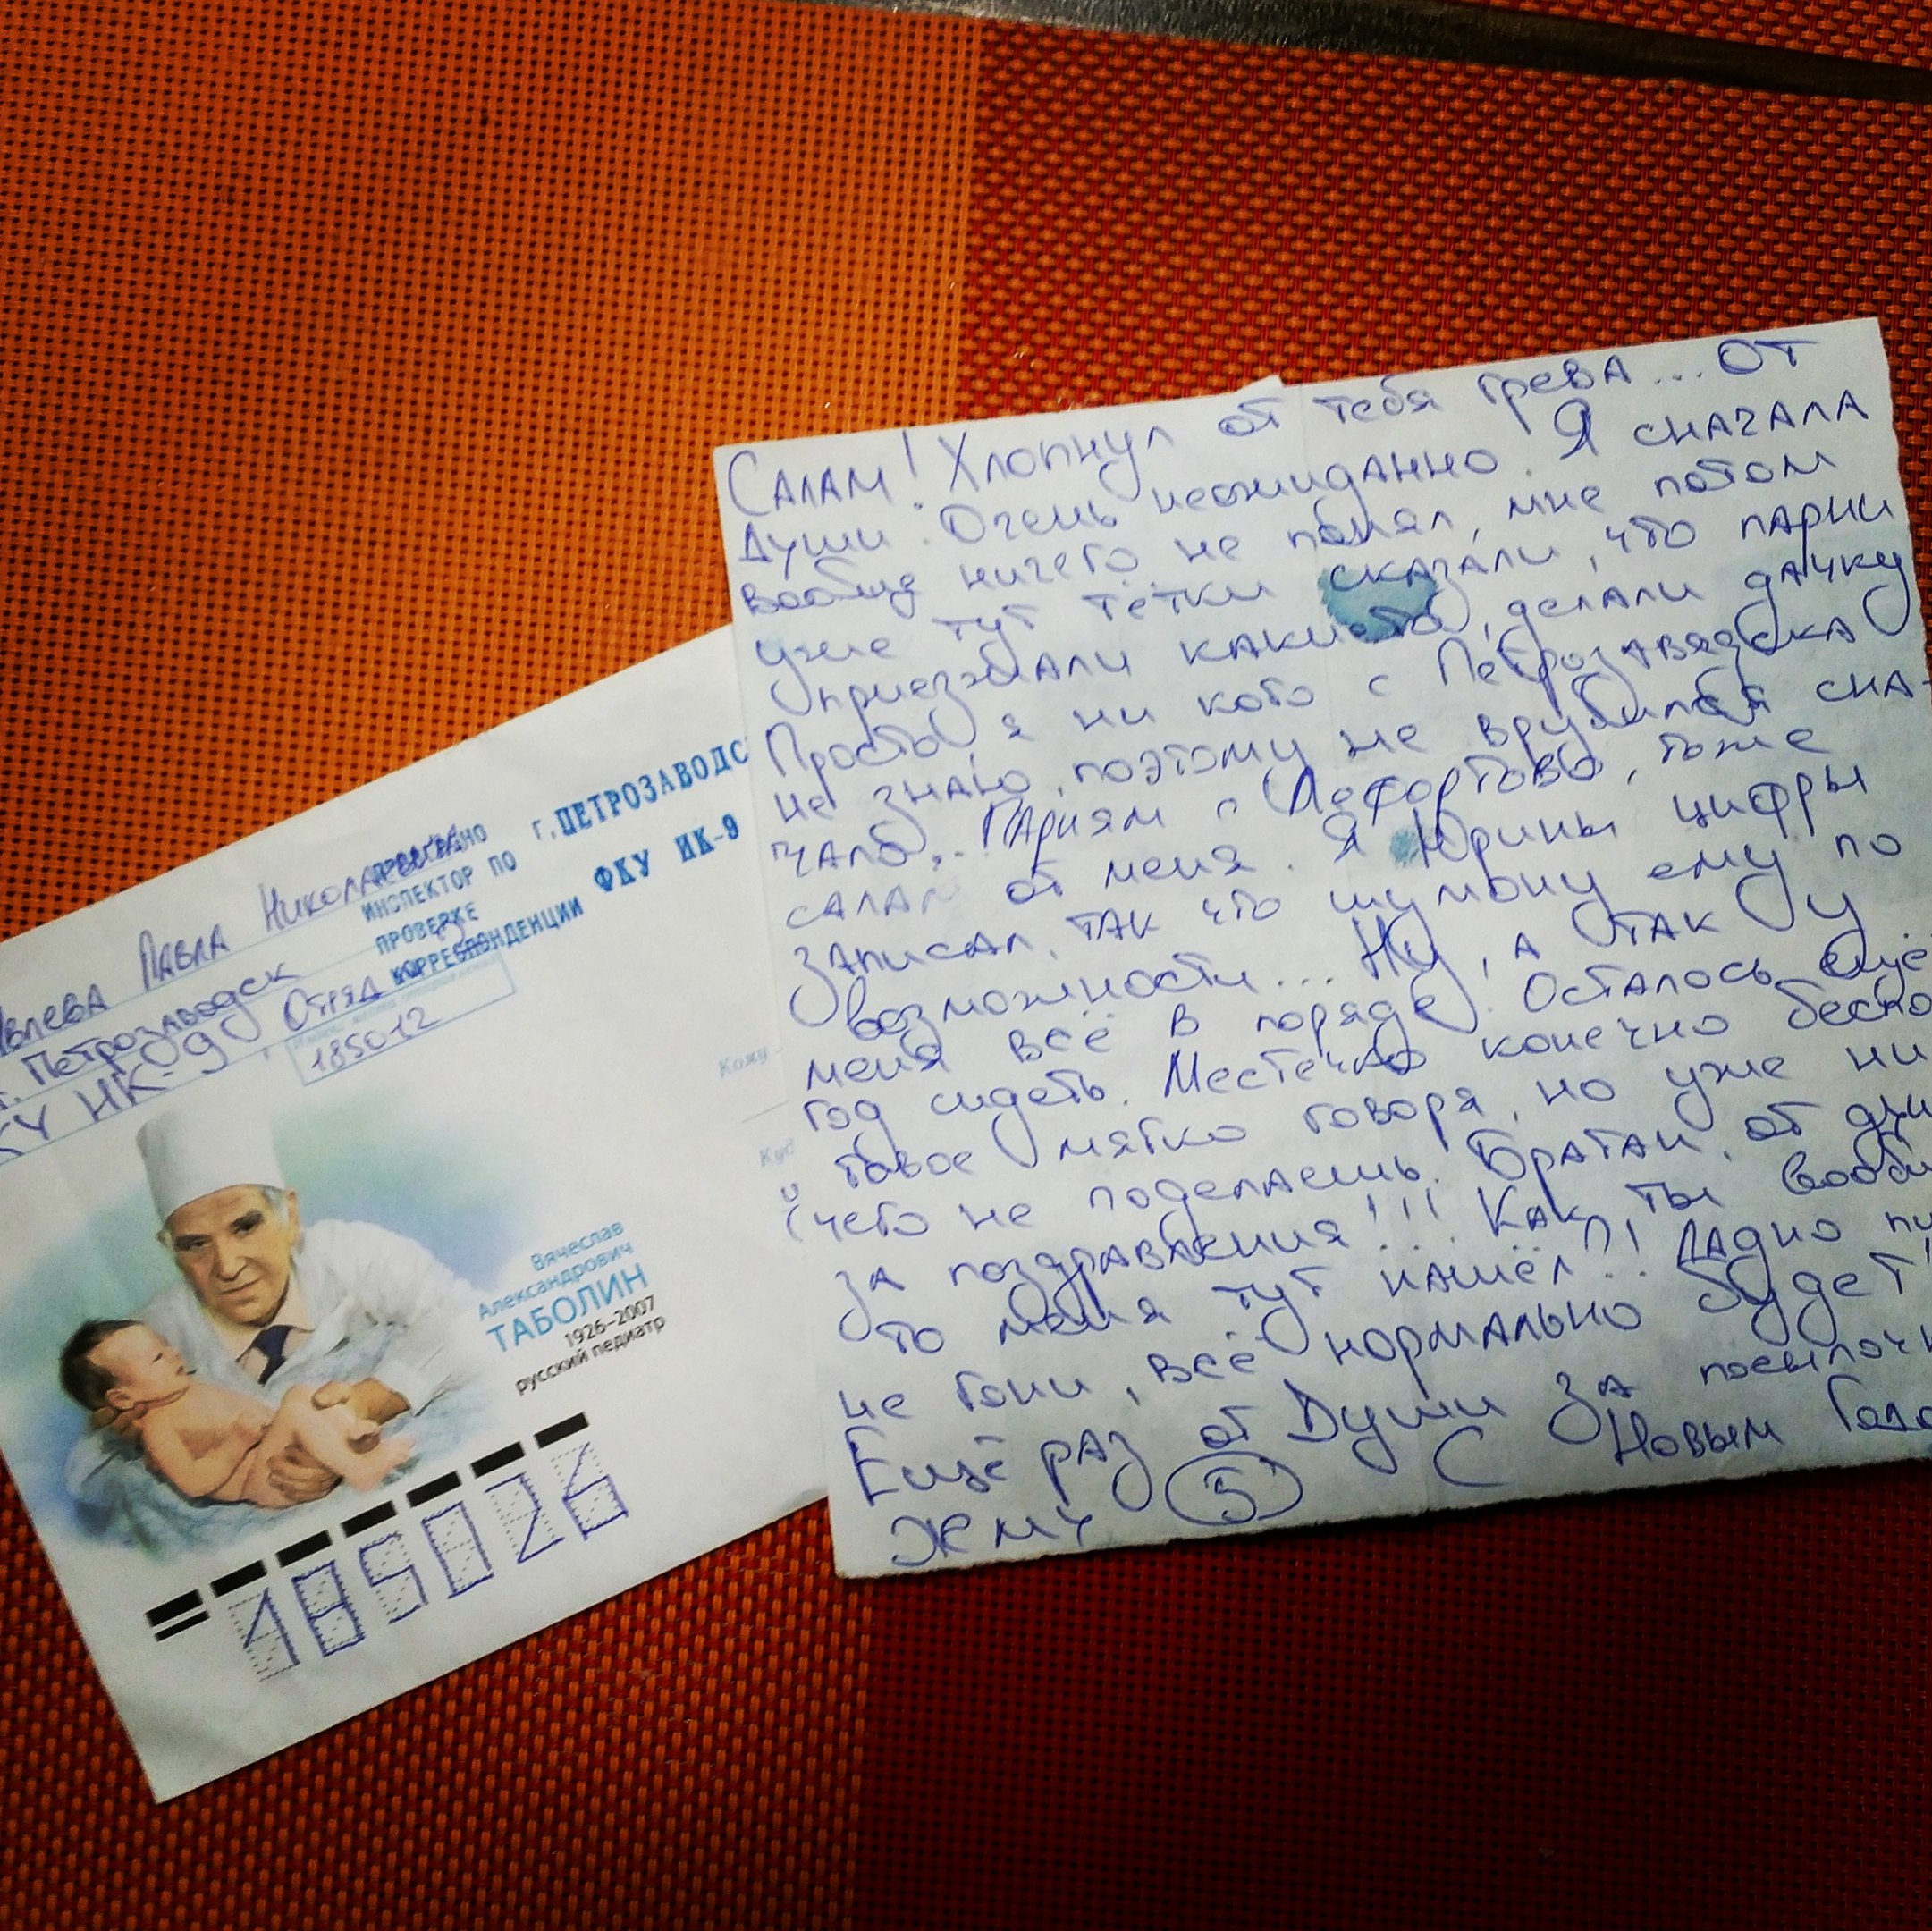 Павла Николаевича
г. Петрозаводск
ИК-9, Отряд
185012
ПРОВЕРЕНО
ИНСПЕКТОР ПО
ПРОВЕРКЕ
КОРРЕСПОНДЕНЦИИ
г. ПЕТРОЗАВОДС
ФКУ ИК-9
Кому
Вячеслав
Александрович
ТАБОЛИН
1926–2007
русский педиатр
185026
Салам! Хлопнул от тебя грева... От
Души. Очень неожиданно. Я сначала
вообще ничего не понял, мне потом
уже тут тётки сказали, что парни
приезжали какието, делали дачку
Просто я ни кого с Петрозавядска
не знаю, поэтому не врубился сна-
чало... Парням с Лефортово, тоже
салам от меня. Я Юрины цифры
записал, так что шумону ему по
возможности... Ну, а так у
меня всё в поряде. Осталось ещё
год сидеть. Местечко конечно беспо
товое мягко говоря, но уже ни
чего не поделаешь. Братан, от ду
за поздравления!!! Как ты вооб
то меня тут нашёл?! Ладно
не гони, всё нормально будет!
Ещё раз от Души за посылочк
Жму 5 С Новым Годо